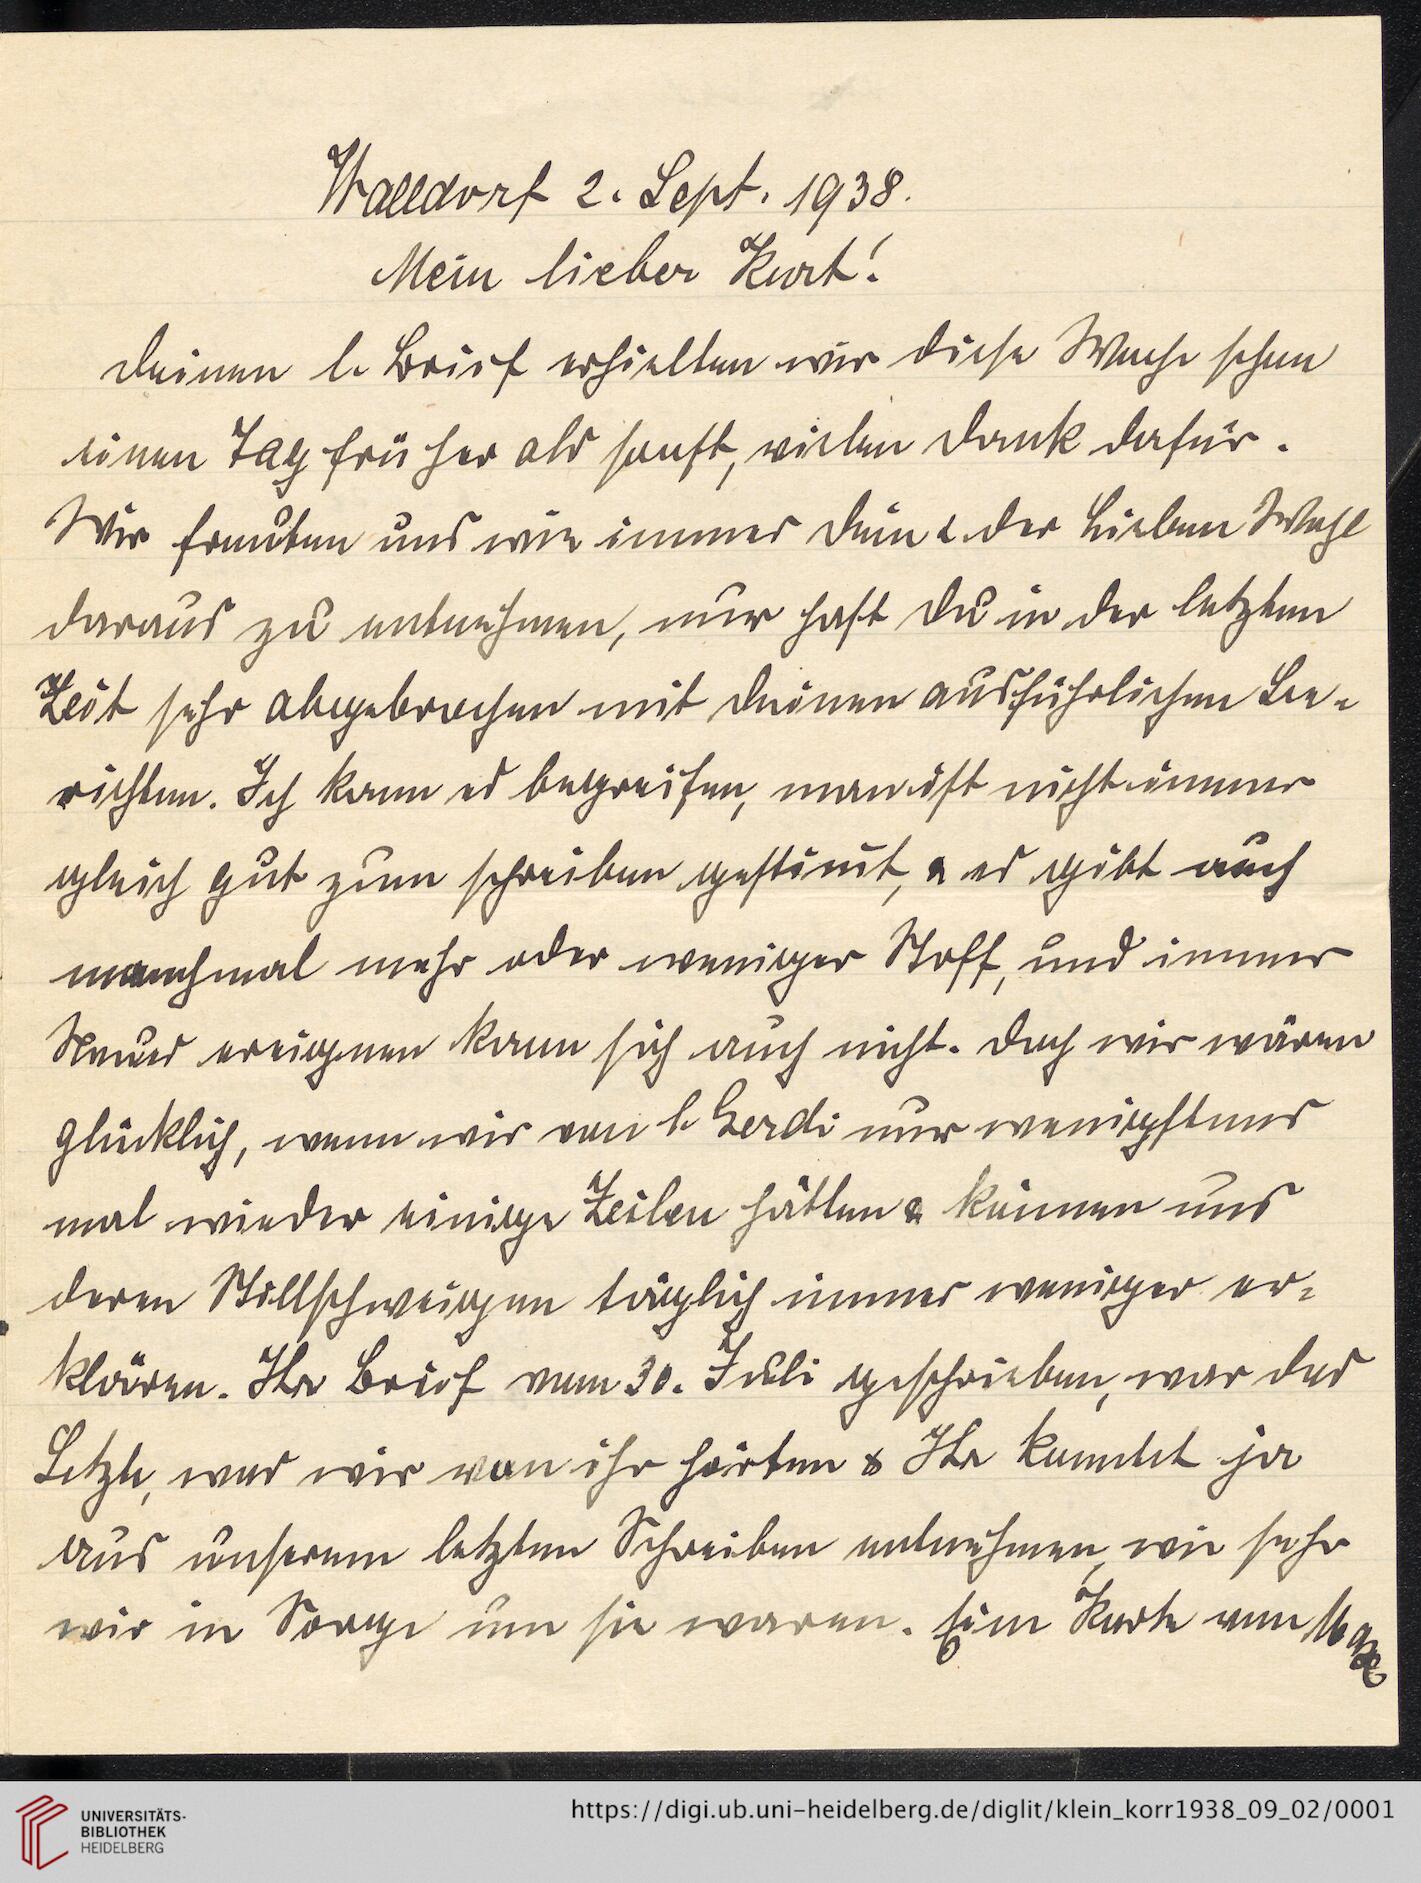 Walldorf 2. Sept. 1938.
Mein lieber Kurt!
Deinen l. Brief erhielten wir diese Woche schon
einen Tag früher als sonst, vielen Dank dafür.
Wir freuten uns wie immer Dein & der Lieben Wohl
daraus zu entnehmen, nur hast Du in der letzten
Zeit sehr abgebrochen mit Deinen ausführlichen Be-
richten. Ich kann es begreifen, man ist nicht immer
gleich gut zum schreiben gestimt, & es gibt auch
manchmal mehr oder weniger Stoff, und immer
Neues ereignen kann sich auch nicht. Doch wir wären
glücklich, wenn wir von l. Gerdi nur wenigstens
mal wieder einige Zeilen hätten & können uns
deren Stillschweigen täglich immer weniger er-
klären. Ihr Brief vom 30. Juli geschrieben, war das
Letzte, was wir von ihr hörten & Ihr konntet ja
aus unserem letzten Schreiben entnehmen, wie sehr
wir in Sorge um sie waren. Eine Karte von Max
UNIVERSITÄTS-
BIBLIOTHEK
HEIDELBERG
https://digi.ub.uni-heidelberg.de/diglit/klein_korr1938_09_02/0001